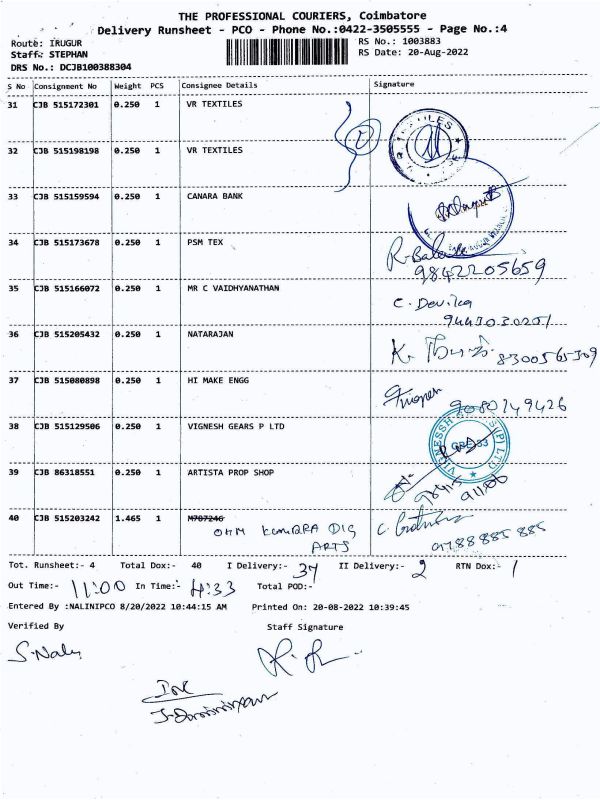 THE PROFESSIONAL COURIERS, Coimbatore
Delivery Runsheet - PCO - Phone No.:0422-3505555 - Page No.:4
Route: IRUGUR RS No.: 1003883
Staff: STEPHAN RS Date: 20-Aug-2022
DRS No.: DCJB100388304
S No Consignment No Weight PCS Consignee Details Signature
31 CJB 515172301 0.250 1 VR TEXTILES
32 CJB 515198198 0.250 1 VR TEXTILES
33 CJB 515159594 0.250 1 CANARA BANK
34 CJB 515173678 0.250 1 PSM TEX
9842205659
35 CJB 515166072 0.250 1 MR C VAIDHYANATHAN C. Devika
9443030201
36 CJB 515205432 0.250 1 NATARAJAN K. 8300565309
37 CJB 515080898 0.250 1 HI MAKE ENGG
9080749426
38 CJB 515129506 0.250 1 VIGNESH GEARS P LTD
39 CJB 86318551 0.250 1 ARTISTA PROP SHOP
40 CJB 515203242 1.465 1 M707246
OHM DIG
ARTS 885 885
Tot. Runsheet:- 4 Total Dox:- 40 I Delivery:- 37 II Delivery:- 2 RTN Dox:- 1
Out Time:- 11:00 In Time:- 4:33 Total POD:-
Entered By :NALINIPCO 8/20/2022 10:44:15 AM Printed On: 20-08-2022 10:39:45
Verified By Staff Signature